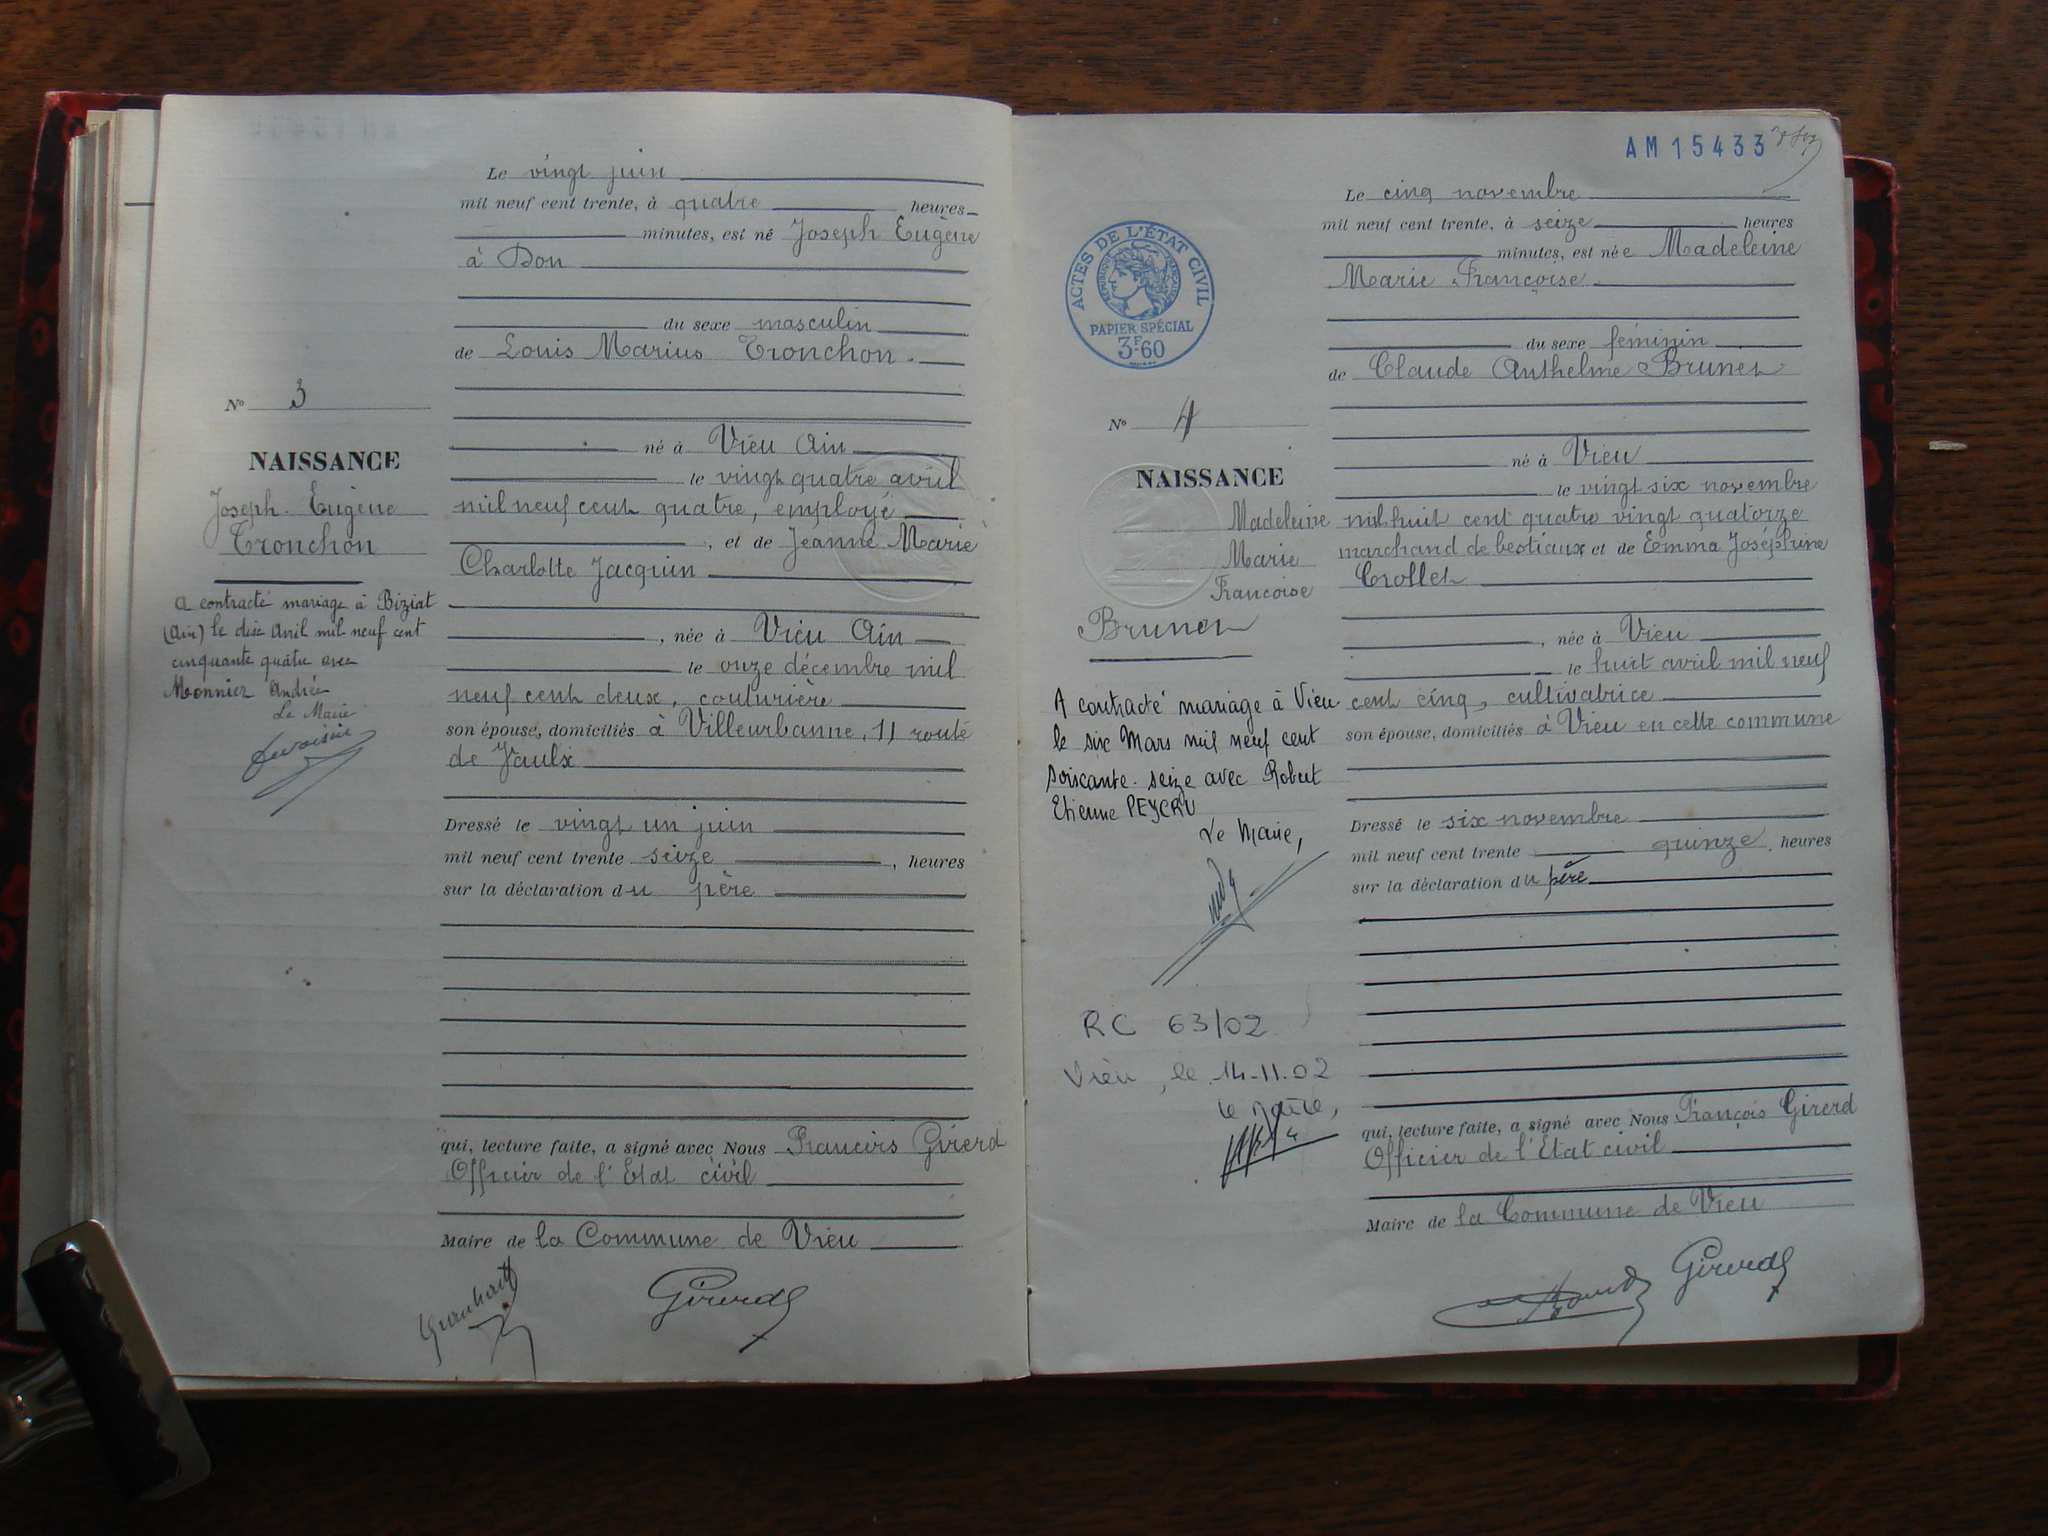 Le vingt juin
mil neuf cent trente, à quatre heures
minutes, est né Joseph Eugène
à Don
du sexe masculin
de Louis Marius Tronchon.
né à Vieu Ain
le vingt quatre avril
mil neuf cent quatre, employé
, et de Jeanne Marie
Charlotte Jacquin
, née à Vieu Ain
le onze décembre mil
neuf cent deux, couturière
son épouse, domiciliés à Villeurbanne, 11 route
de Vaulx
Dressé le vingt un juin
mil neuf cent trente seize, heures
sur la déclaration du père
qui, lecture faite, a signé avec Nous François Girerd
Officier de l'Etat civil
Maire de la Commune de Vieu
Girerd
N° 3
NAISSANCE
Joseph Eugène
Tronchon
A contracté mariage à Biziat
(Ain) le dix Avril mil neuf cent
cinquante quatre avec
Monnier Andrée
Le Maire
AM15433
Le cinq novembre
mil neuf cent trente, à seize heures
minutes, est née Madeleine
Marie Françoise
du sexe féminin
de Claude Anthelme Brunet
né à Vieu
le vingt six novembre
mil huit cent quatre vingt quatorze
marchand de bestiaux et de Emma Joséphine
Crollet
, née à Vieu
le huit avril mil neuf
cent cinq, cultivatrice
son épouse, domiciliés à Vieu en cette commune
Dressé le six novembre
mil neuf cent trente quinze, heures
sur la déclaration du père
qui, lecture faite, a signé avec Nous François Girerd
Officier de l'Etat civil
Maire de la Commune de Vieu
Girerd
ACTES DE L'ÉTAT CIVIL
PAPIER SPÉCIAL
3F60
N° 4
NAISSANCE
Madeleine
Marie
Françoise
Brunet
A contracté mariage à Vieu
le six Mars mil neuf cent
soixante-seize avec Robert
Etienne PEYCRU
Le Maire,
RC 63/02
Vieu, le 14-11-02
Le Maire,